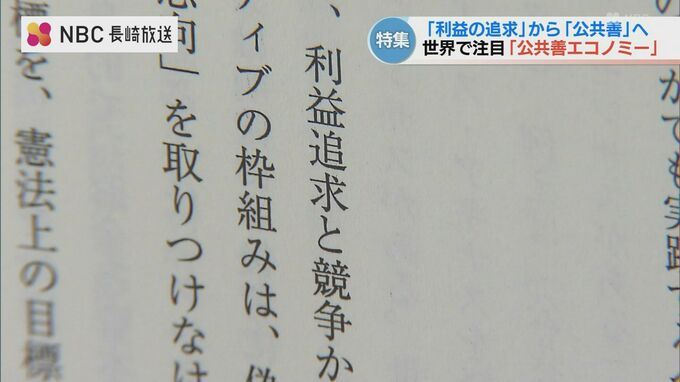 NBC 長崎放送
特集
「利益の追求」から「公共善」へ
世界で注目「公共善エコノミー」
がでも実践
、利益追求と競争か
ィブの枠組みは、
向」を取りつけなけ
標を、憲法上の目標